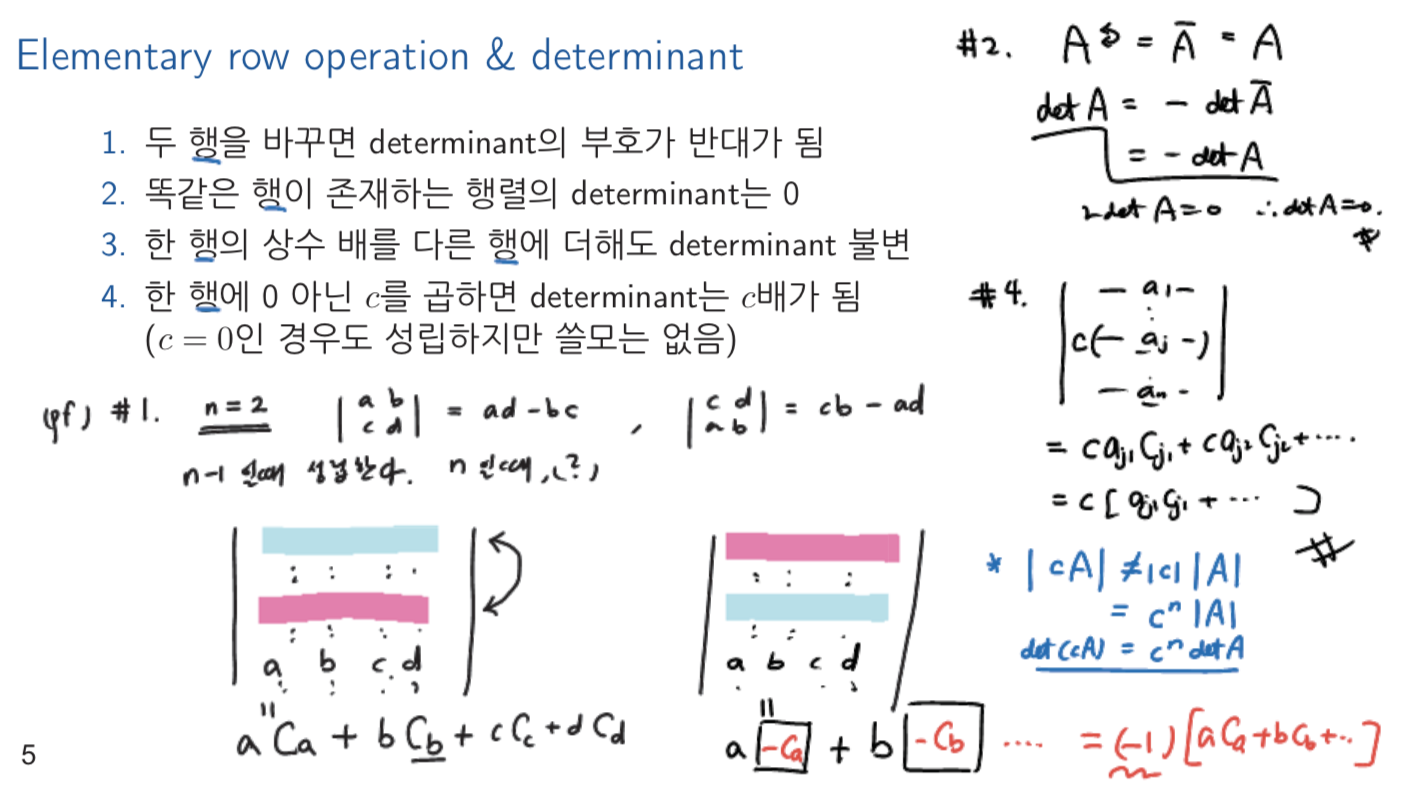 Elementary row operation & determinant
1. 두 행을 바꾸면 determinant의 부호가 반대가 됨
2. 똑같은 행이 존재하는 행렬의 determinant는 0
3. 한 행의 상수 배를 다른 행에 더해도 determinant 불변
4. 한 행에 0 아닌 c를 곱하면 determinant는 c배가 됨
(c = 0인 경우도 성립하지만 쓸모는 없음)
#2. A = Ā = A
det A = - det Ā
= - det A
2 det A = 0 ∴ det A = 0.
#4. | — a₁ — |
⋮
| c(— aⱼ —) |
| — aₙ — |
= c aⱼ₁ Cⱼ₁ + c aⱼ₂ Cⱼ₂ + ....
= c [ aⱼ₁ Cⱼ₁ + ... ]
* | cA | ≠ |c| |A|
= cⁿ |A|
det(cA) = cⁿ det A
(pf) #1. n = 2 | a b | = ad - bc , | c d | = cb - ad
| c d | | a b |
n-1 일때 성립한다. n 일때, (?)
a b c d
a Ca + b Cb + c Cc + d Cd
a b c d
a -Ca + b -Cb .... = (-1) [a Ca + b Cb + ..]
5